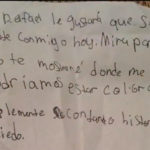 Rafael le gustará que S
te conmigo hoy. Mira par
o te mostraré donde me
dríamos estar calor
plemente contando histor
iedo.